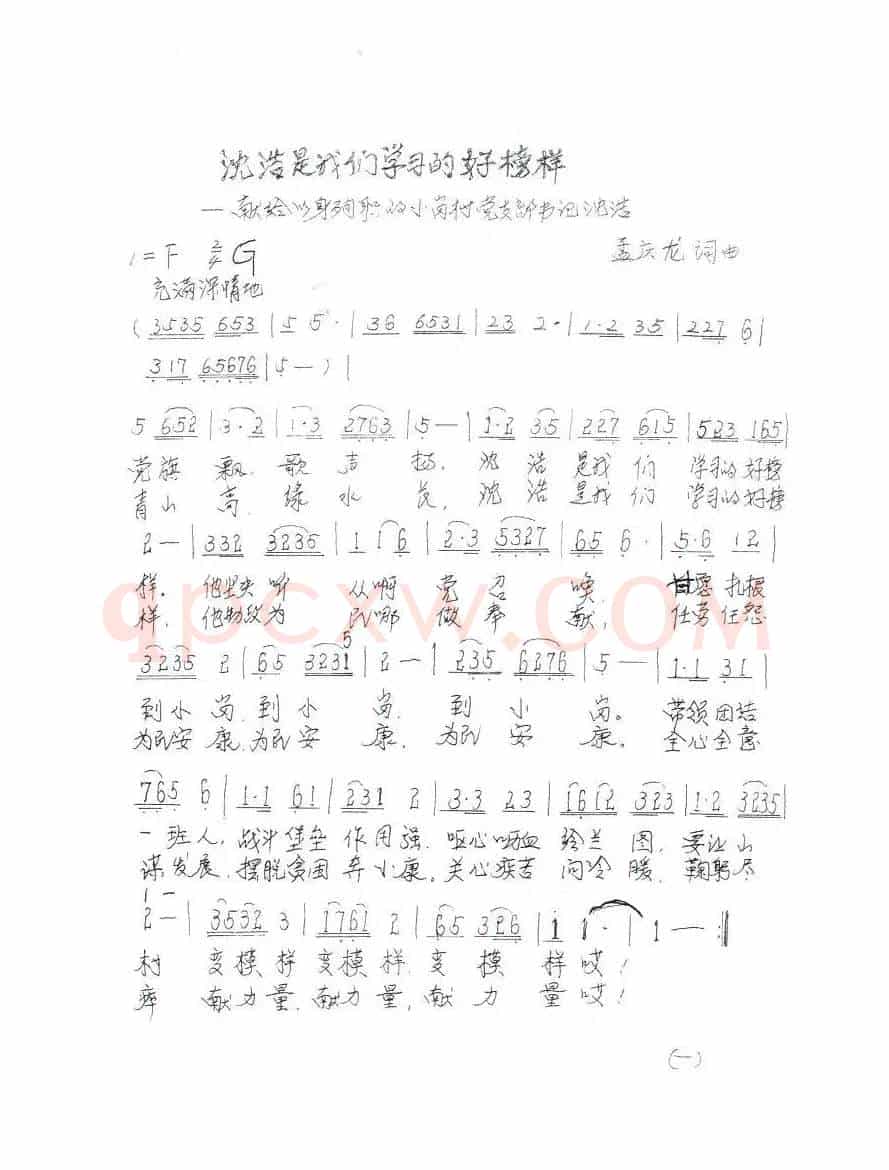 沈浩是我们学习的好榜样
—献给以身殉职的小岗村党支部书记沈浩
1=F 2/4 G 孟庆龙 词曲
充满深情地
(3535 653 | 5 5· | 36 6531 | 23 2· | 1·2 35 | 227 6 |
317 65676 | 5 — ) |
5 652 | 3·2 | 1·3 2763 | 5 — | 1·2 35 | 227 615 | 523 165 |
党旗飘.歌声扬,沈浩是我们学习的好榜
青山高.绿水长,沈浩是我们学习的好榜
2 — | 332 3235 | 1 1 6 | 2·3 5327 | 65 6· | 5·6 12 |
样.他坚决听从啊党召唤,甘愿扎根
样.他为民哪做奉献,任劳任怨
3235 2 | 65 3231 5 | 2 — | 235 6276 | 5 — | 1·1 31 |
到小岗.到小岗.到小岗。带领团结
为民安康.为民安康.为民安康.全心全意
765 6 | 1·1 61 | 231 2 | 3·3 23 | 1612 323 | 1·2 3235 |
一班人,战斗堡垒作用强.呕心呖血绘兰图,要让山
谋发展.摆脱贫困奔小康。关心疾苦问冷暖.鞠躬尽
1 —
2 — | 3532 3 | 1761 2 | 65 326 | 1 1· | 1 — :||
村变模样变模样.变模样哎!
瘁献力量.献力量,献力量哎!
(一)
qpcxw.COM